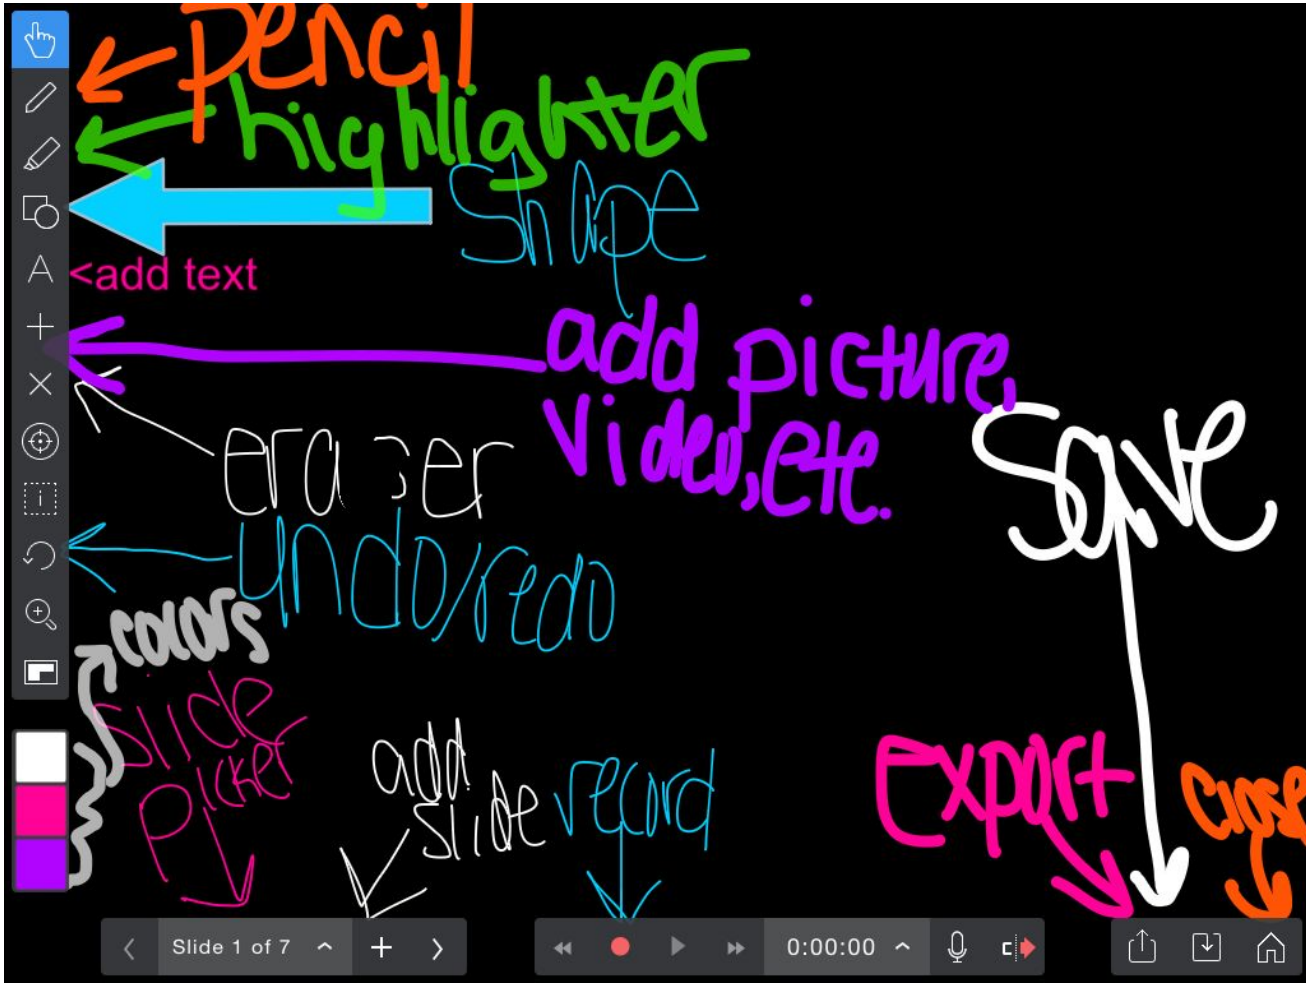 pencil
highlighter
shape
A <add text
add picture,
video, etc.
save
eraser
undo/redo
colors
slide
picker
add
slide
record
export
close
Slide 1 of 7
0:00:00